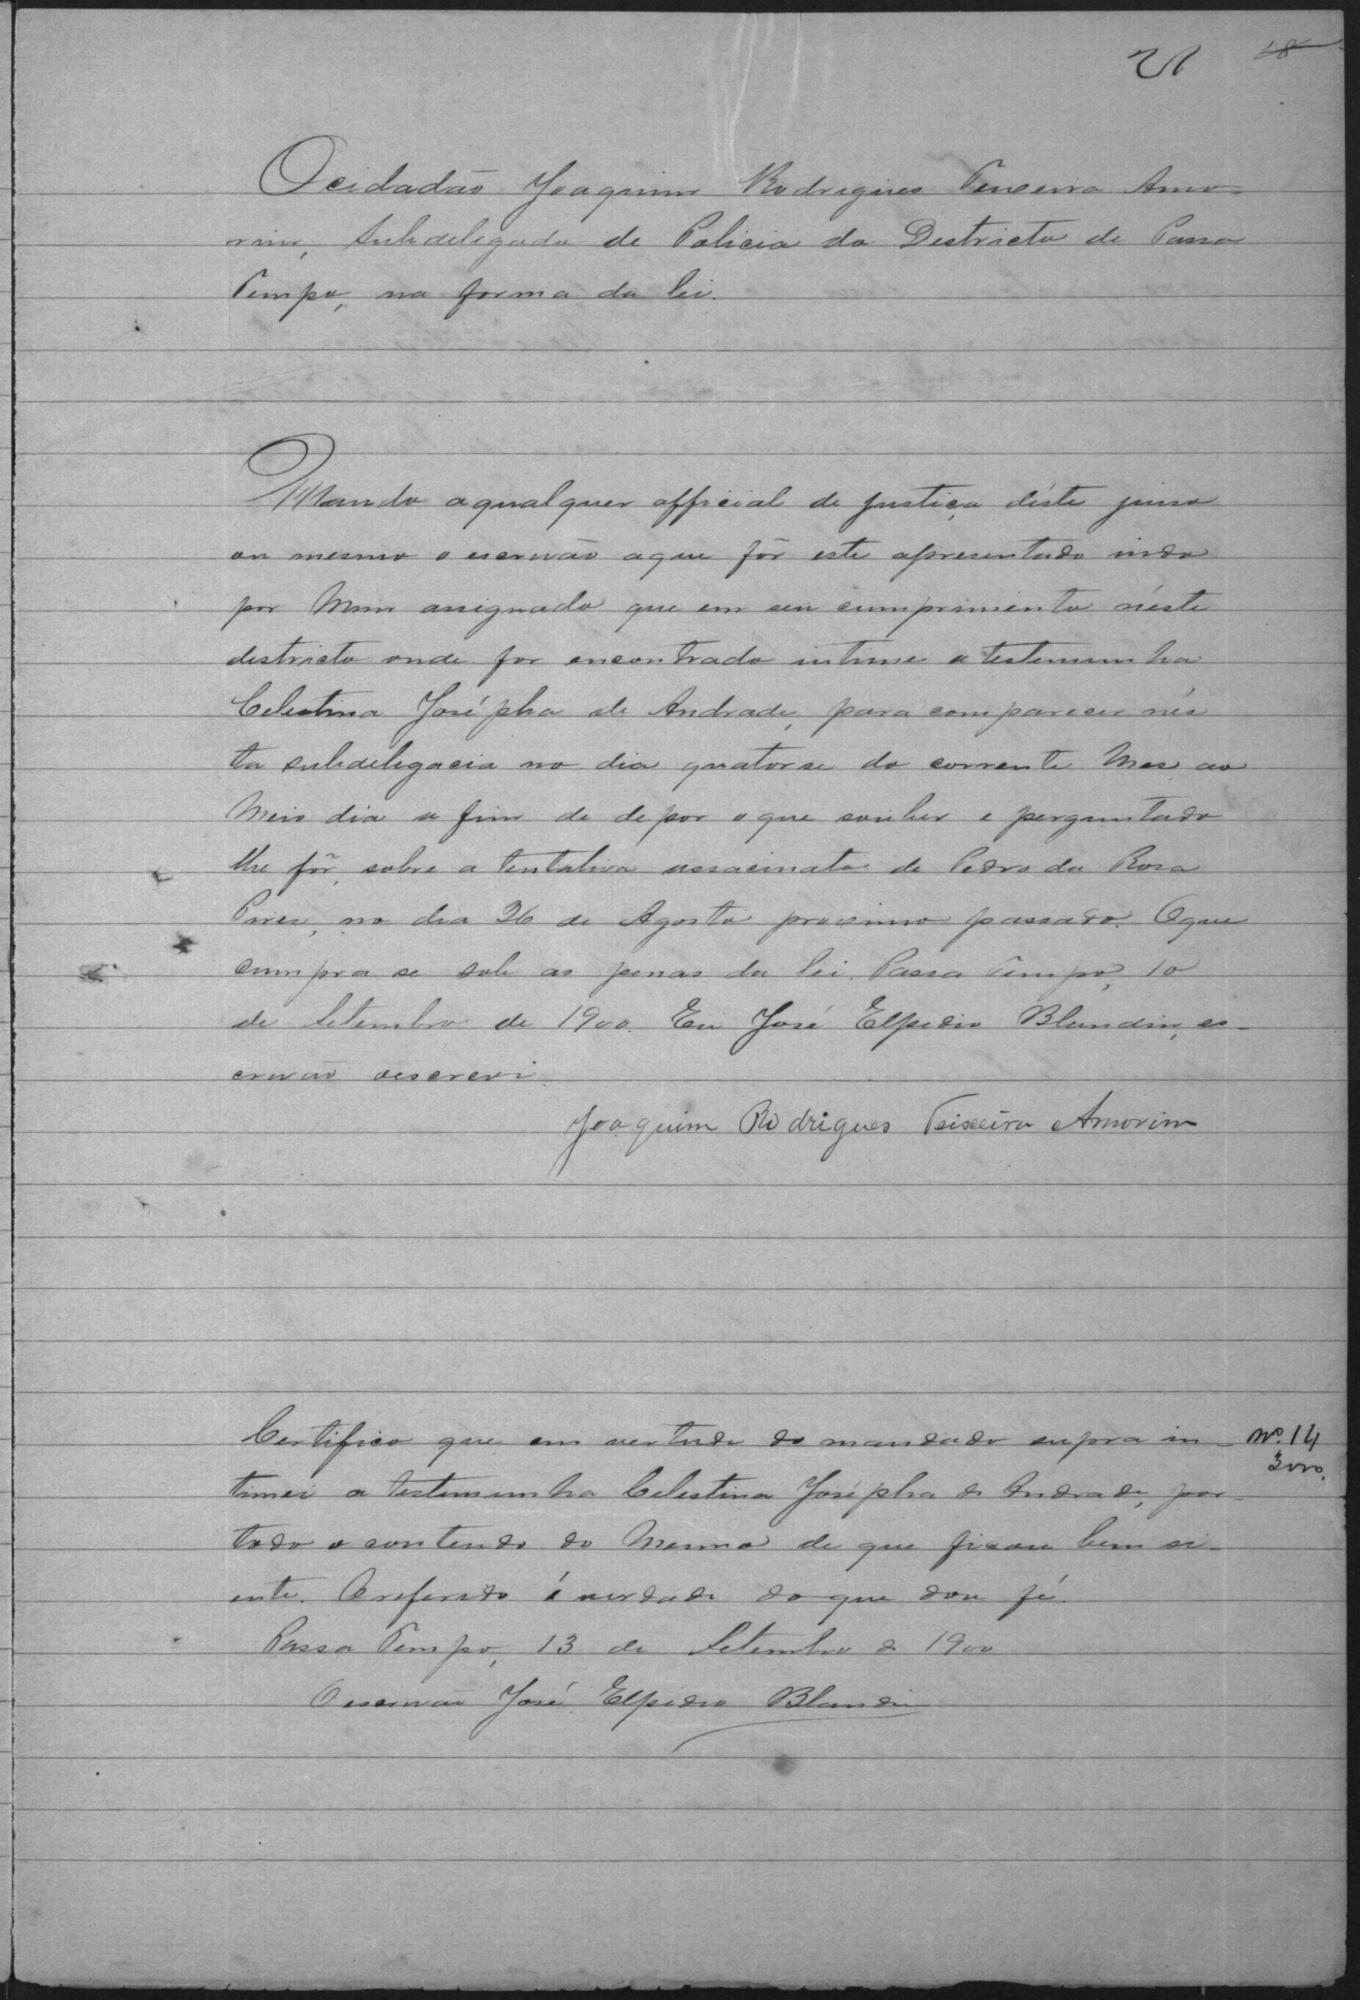 21 18
O cidadão Joaquim Rodrigues Teixeira Amo-
rim, Subdelegado de Policia do Destricto de Passa
Tempo, na forma da lei.
Mando aqualquer official de justiça déste juiso
ou mesmo o escrivão aque fôr este apresentado indo
por Mim assignado que em seu cumprimento néste
destricto onde for encontrado intime a testemunha
Celestina Josépha de Andrade, para comparecer nés
ta subdelegacia no dia quatorse do corrente Mes ao
Meio dia a fim de depor o que souber e perguntado
lhe fôr, sobre a tentativa assacinato de Pedro da Rosa
Pires, no dia 26 de Agosto proximo passado. Oque
cumpra se sob as penas da lei. Passa Tempo, 10
de Setembro de 1900. Eu José Elpidio Blandin, es-
crivão oescrevi.
Joaquim Rodrigues Teixeira Amorim
Certifico que em vertude do mandado supra in-
Nº. 14
3000.
timei a testemunha Celestina Josépha de Andrade, por
todo o contendo do Mesmo de que ficou bem si-
ente. Oreferido é verdade do que dou fé.
Passa Tempo, 13 de Setembro de 1900
O escrivão José Elpidio Blandin